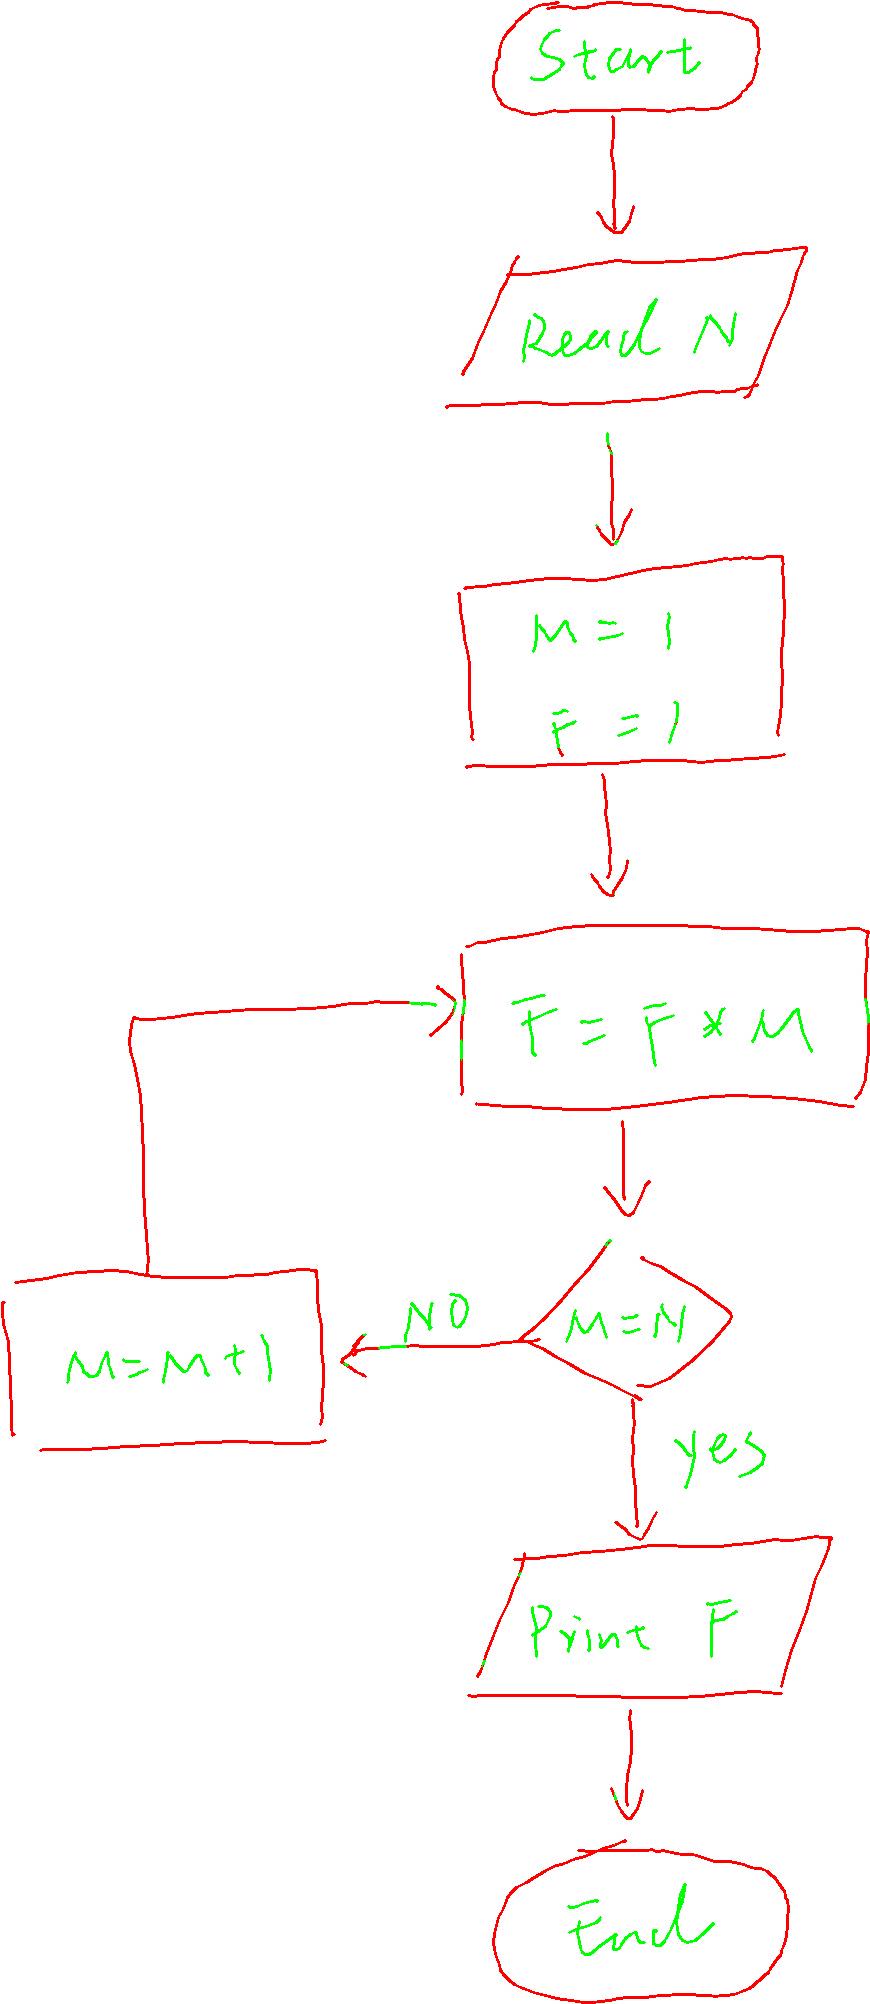 Start
Read N
M = 1
F = 1
F = F * M
M = N
NO
M = M + 1
yes
Print F
End